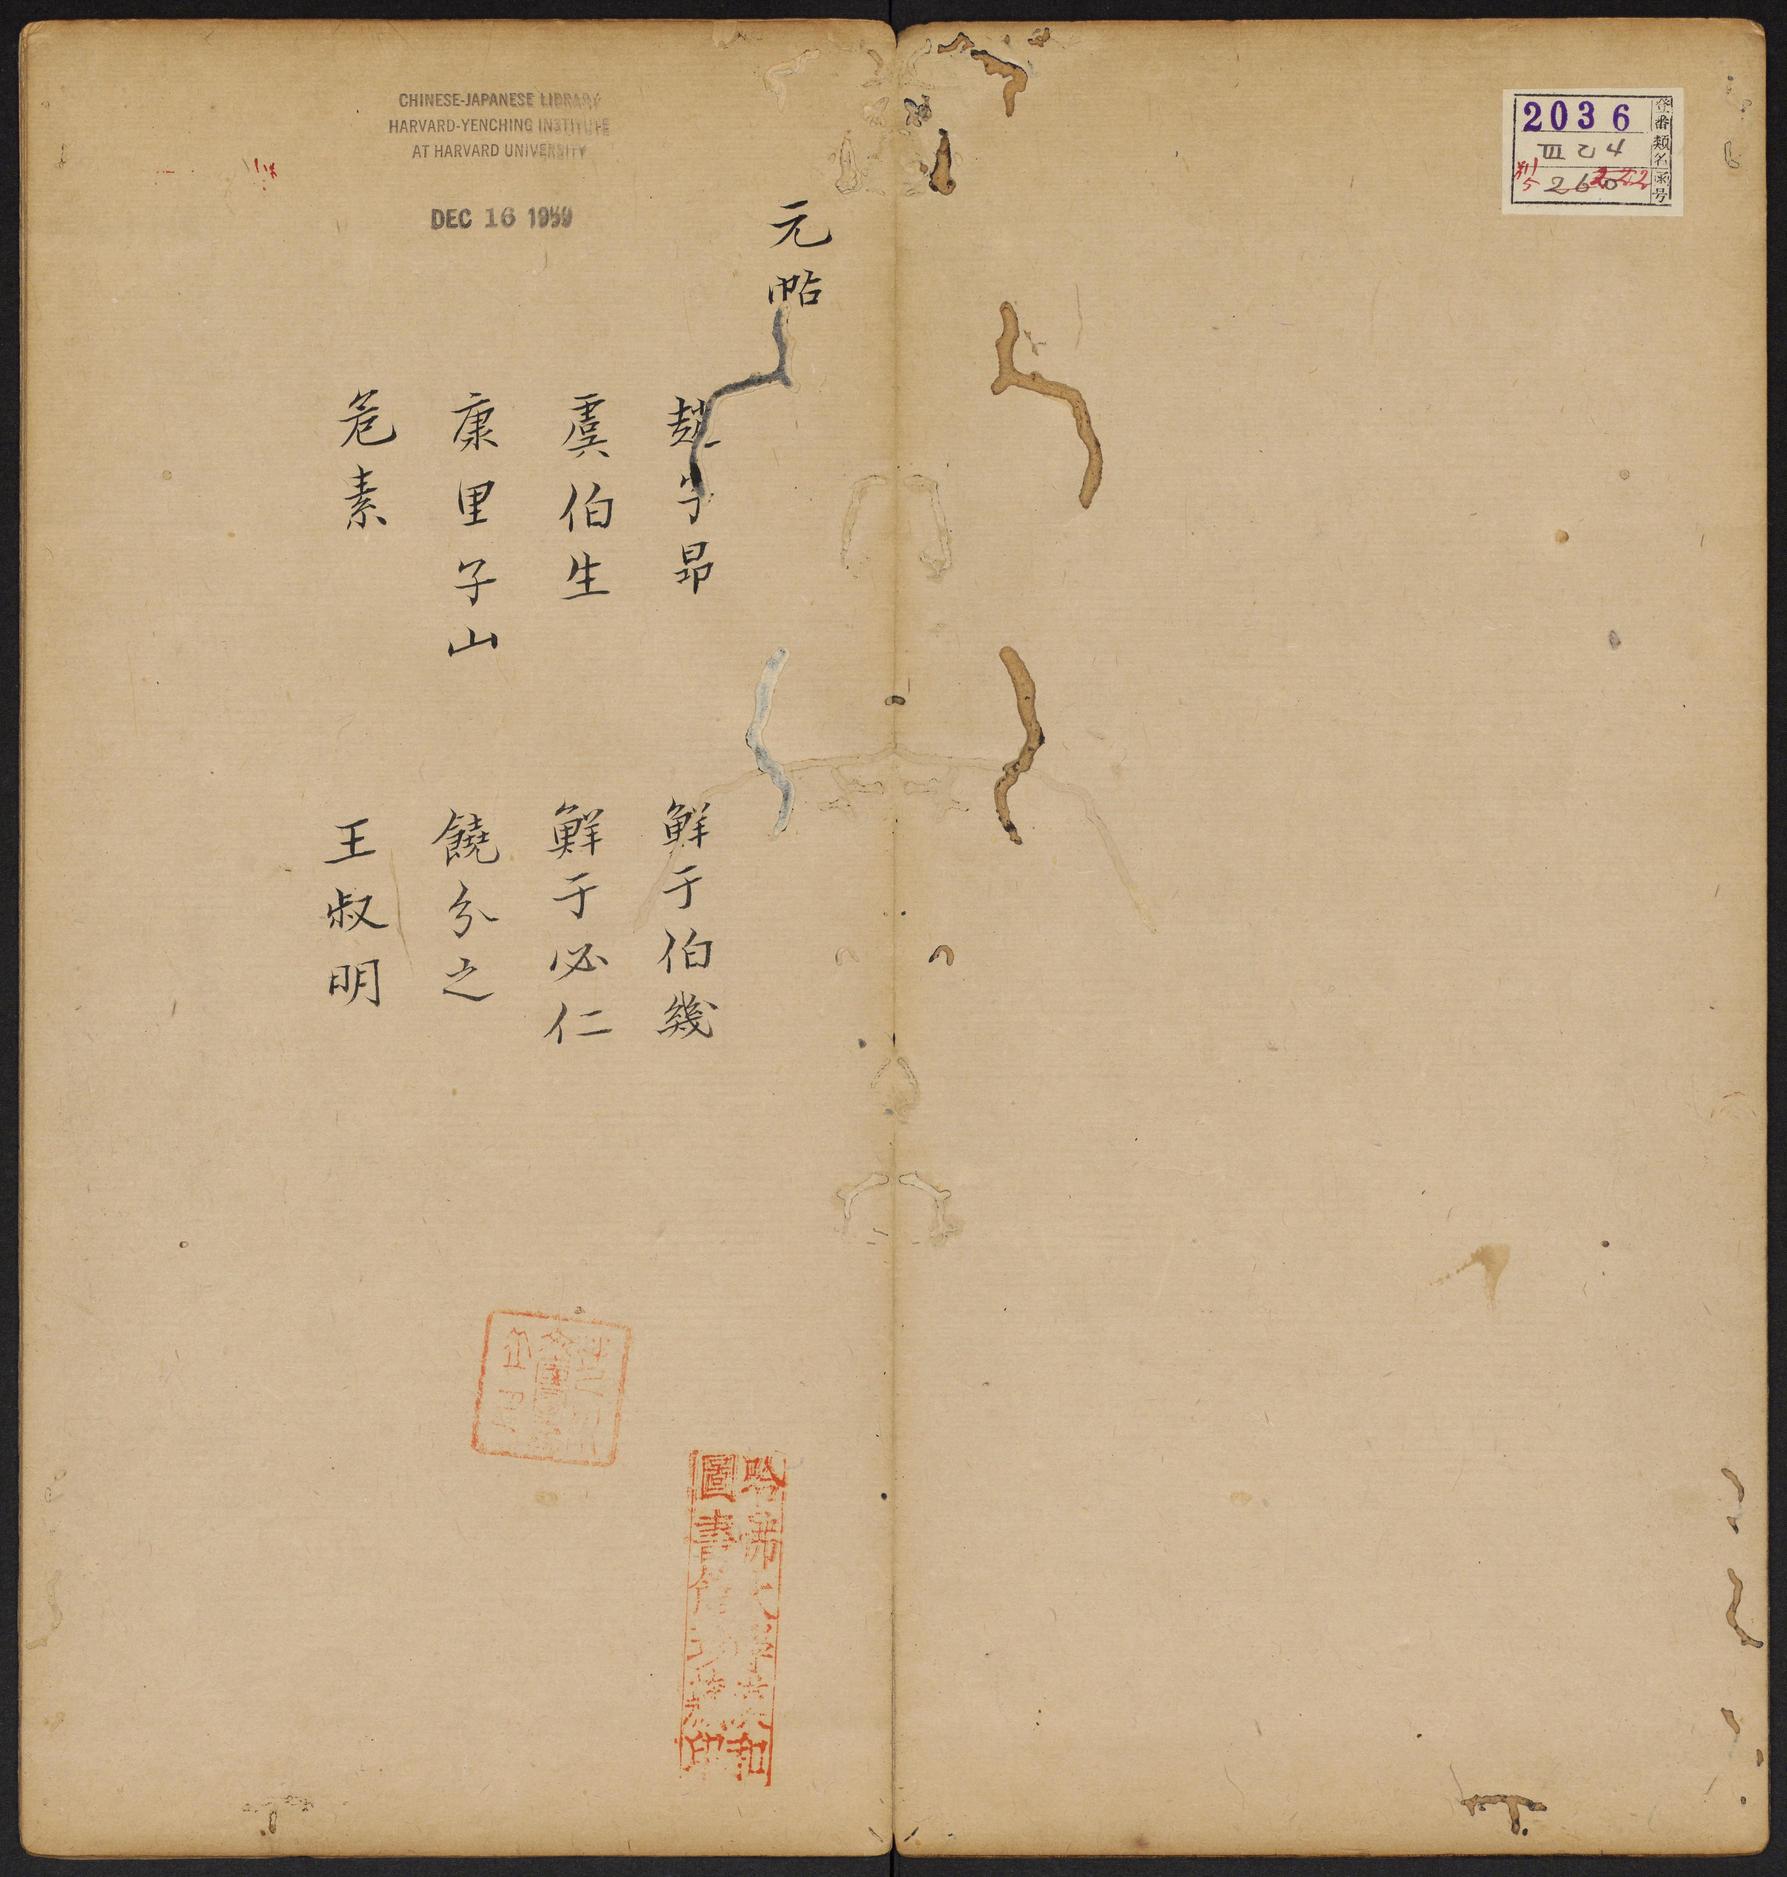 2036
登番
類名
函号
CHINESE-JAPANESE LIBRARY
HARVARD-YENCHING INSTITUTE
AT HARVARD UNIVERSITY
DEC 16 1959
元帖
趙子昂
鮮于伯幾
虞伯生
鮮于必仁
康里子山
饒介之
危素
王叔明
哈佛大學漢和
圖書館珍藏印